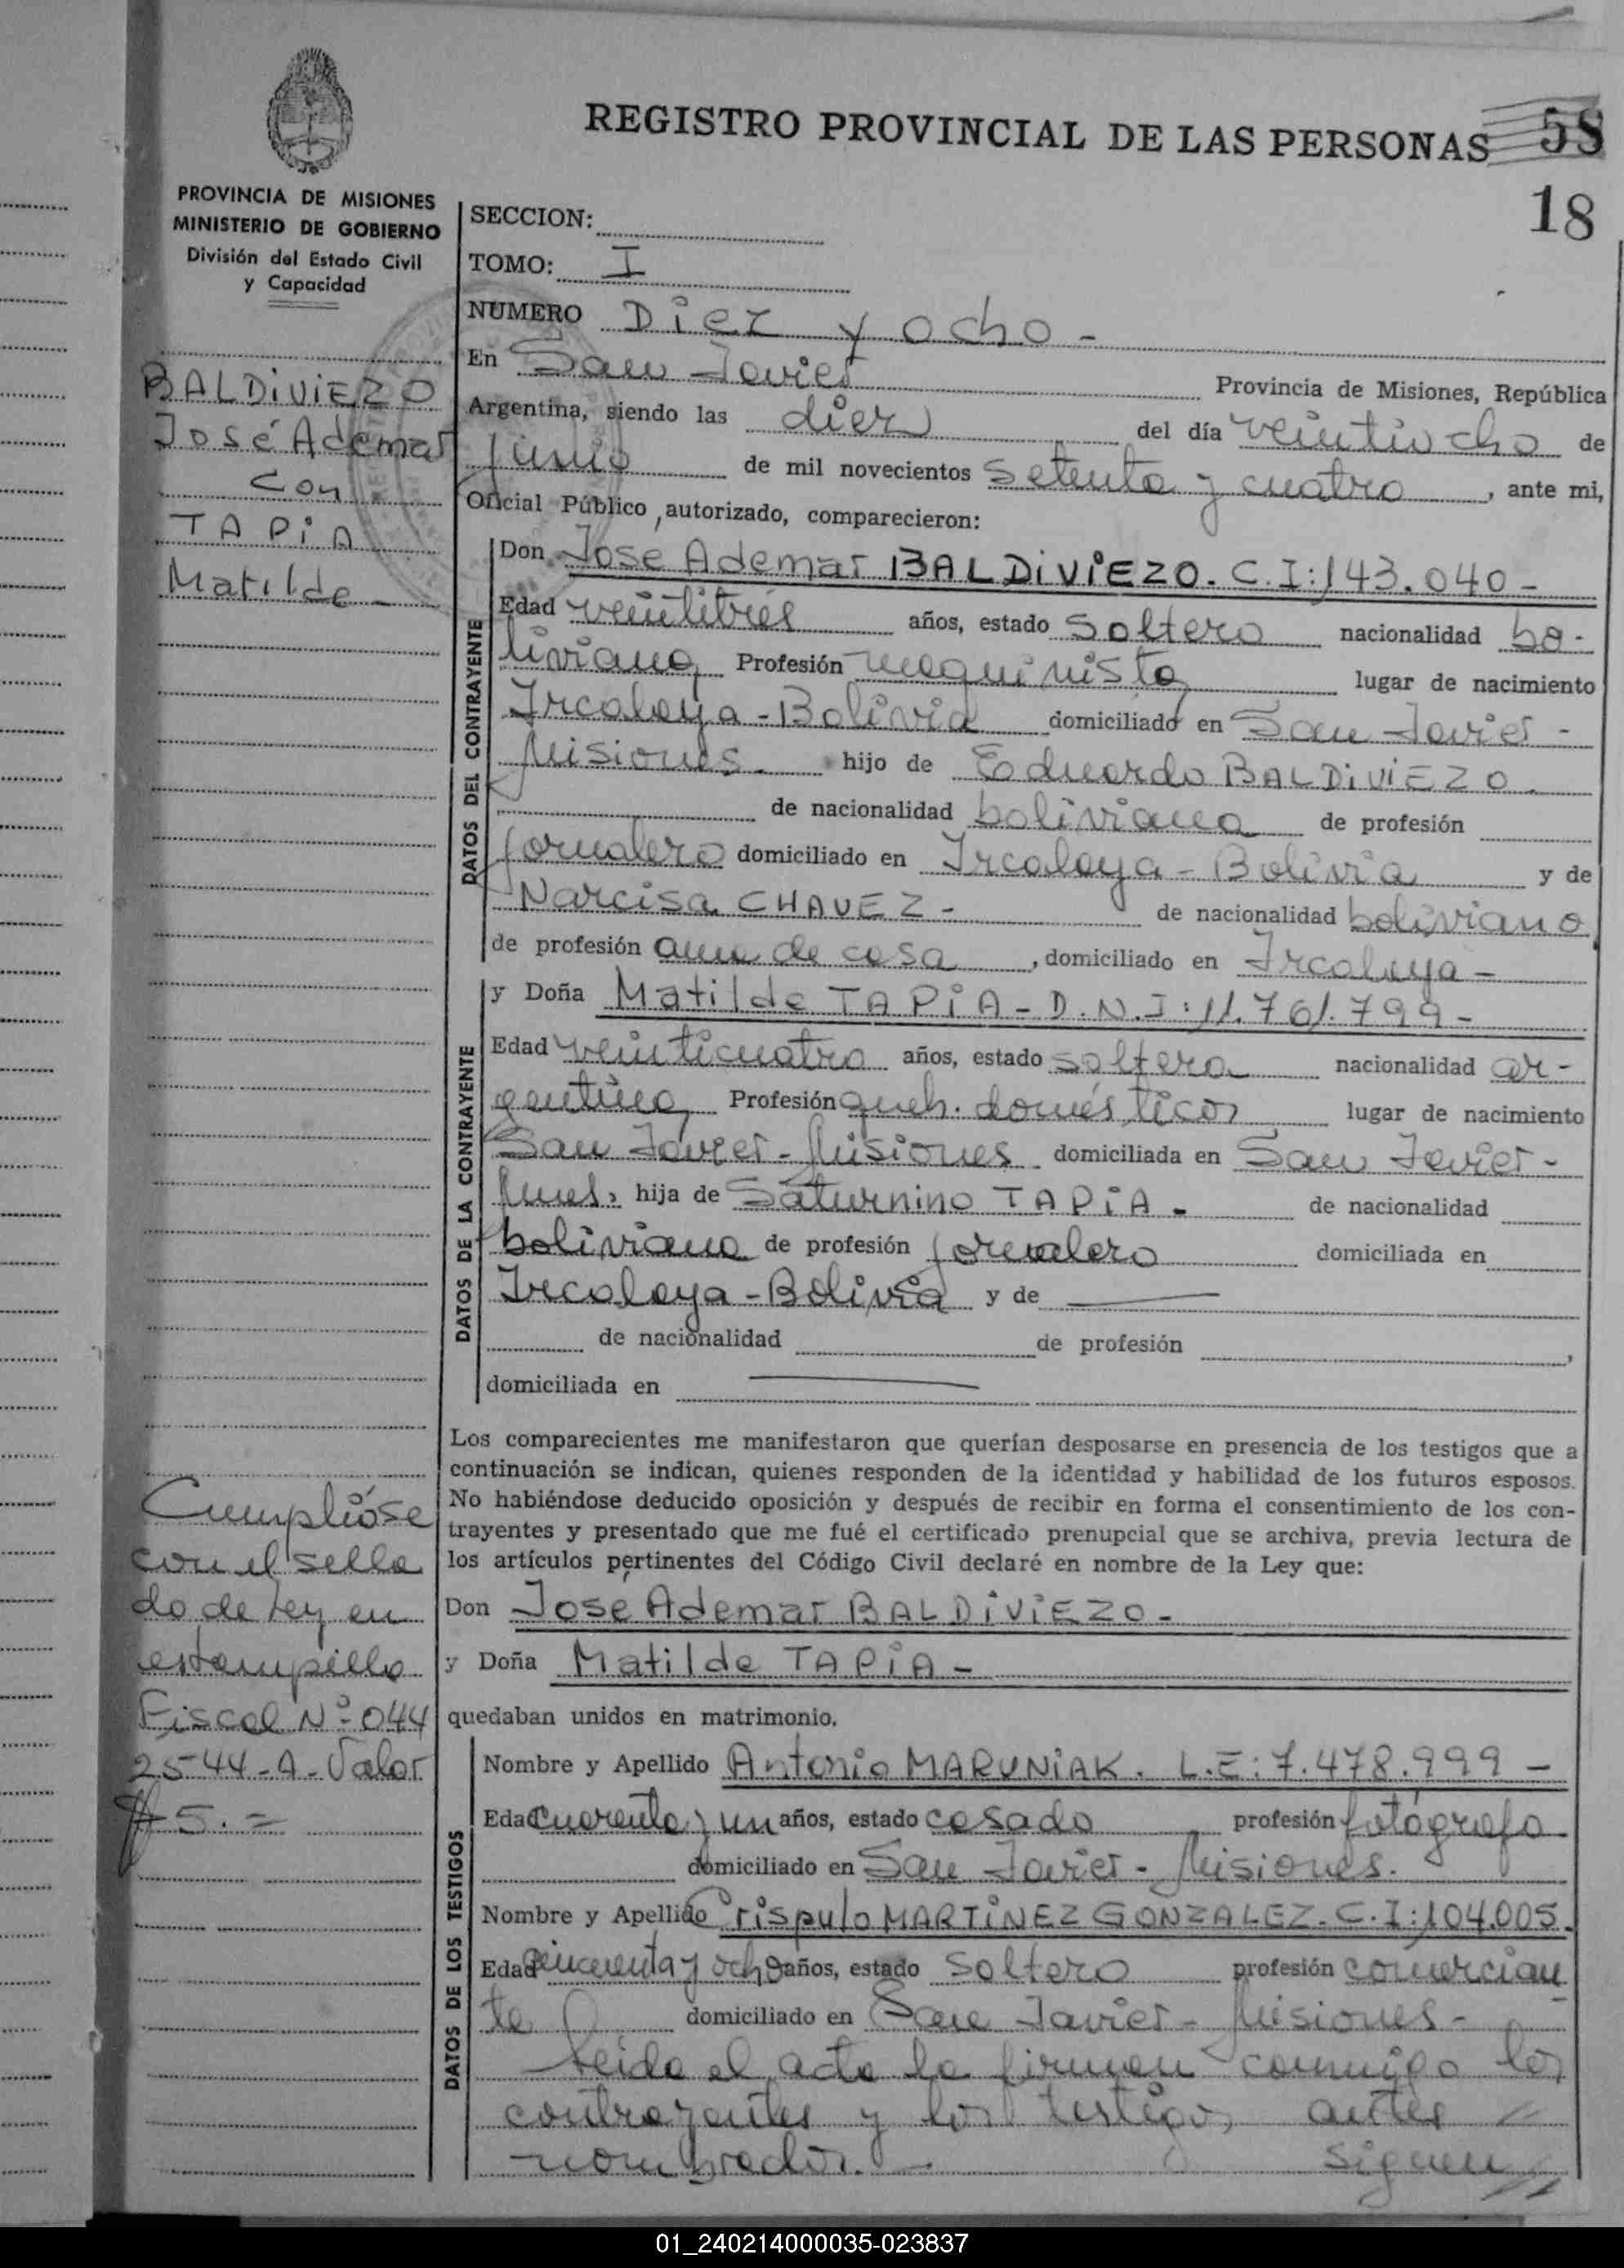 REGISTRO PROVINCIAL DE LAS PERSONAS 58
18
PROVINCIA DE MISIONES
MINISTERIO DE GOBIERNO
División del Estado Civil
y Capacidad
BALDIVIEZO
José Ademar
con
TAPIA
Matilde -
Cumplióse
con el sella
do de Ley en
estampilla
Fiscal Nº 044
2544-A-Valor
$ 5.=
SECCION:
TOMO: I
NUMERO Diez y ocho -
En San Javier Provincia de Misiones, República
Argentina, siendo las diez del día veintiocho de
junio de mil novecientos setenta y cuatro, ante mi,
Oficial Público, autorizado, comparecieron:
DATOS DEL CONTRAYENTE
Don José Ademar BALDIVIEZO. C.I: 143.040 -
Edad veintitrés años, estado soltero nacionalidad bo-
liviana Profesión maquinista lugar de nacimiento
Ircalaya - Bolivia domiciliado en San Javier -
Misiones. hijo de Eduardo BALDIVIEZO.
de nacionalidad boliviana de profesión
jornalero domiciliado en Ircalaya - Bolivia y de
Narcisa CHAVEZ - de nacionalidad boliviano
de profesión ama de casa, domiciliado en Ircalaya -
DATOS DE LA CONTRAYENTE
y Doña Matilde TAPIA - D.N.I: 11.761.799 -
Edad veinticuatro años, estado soltera nacionalidad ar-
gentina Profesión queh. domésticos lugar de nacimiento
San Javier - Misiones domiciliada en San Javier -
Mnes. hija de Saturnino TAPIA - de nacionalidad
boliviana de profesión jornalero domiciliada en
Ircalaya - Bolivia y de
de nacionalidad de profesión ,
domiciliada en
Los comparecientes me manifestaron que querían desposarse en presencia de los testigos que a
continuación se indican, quienes responden de la identidad y habilidad de los futuros esposos.
No habiéndose deducido oposición y después de recibir en forma el consentimiento de los con-
trayentes y presentado que me fué el certificado prenupcial que se archiva, previa lectura de
los artículos pertinentes del Código Civil declaré en nombre de la Ley que:
Don José Ademar BALDIVIEZO -
y Doña Matilde TAPIA -
quedaban unidos en matrimonio.
DATOS DE LOS TESTIGOS
Nombre y Apellido Antonio MARUNIAK. L.E: 7.478.999 -
Edad cuarenta y un años, estado casado profesión fotógrafo
domiciliado en San Javier - Misiones.
Nombre y Apellido Crispulo MARTINEZ GONZALEZ. C.I: 104.005.
Edad cincuenta y ocho años, estado soltero profesión comercian
te domiciliado en San Javier - Misiones -
Leída el acta la firman conmigo los
contrayentes y los testigos antes
nombrados. - siguen //
01_240214000035-023837